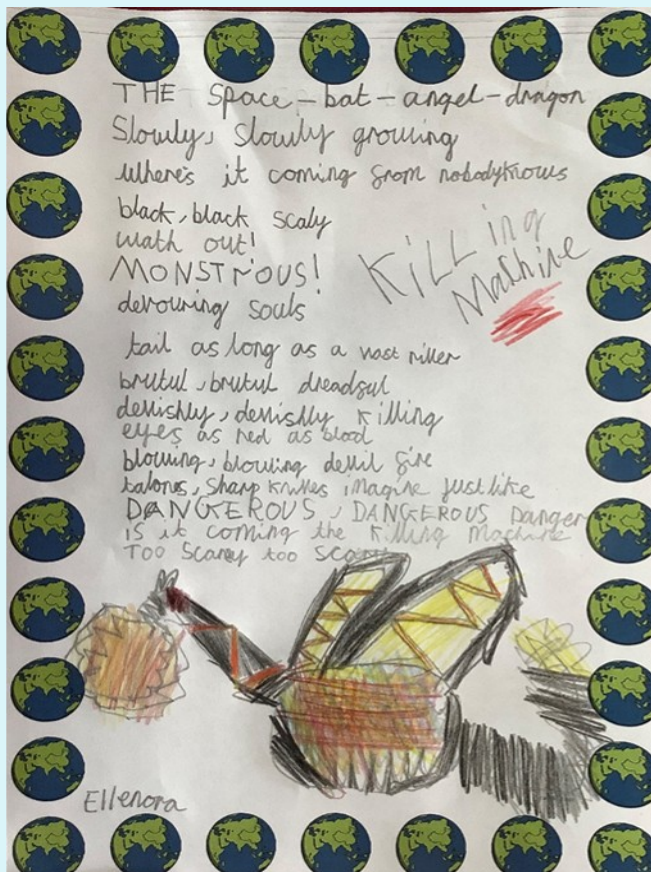 THE Space-bat-angel-dragon
Slowly, Slowly growing
Where's it coming from nobodyknows
black, black scaly
wath out!
MONSTROUS!
devouring souls
KiLLing
Machine
tail as long as a vast river
brutul, brutul dreadful
devlishly, devlishly killing
eyes as red as blood
blowing, blowing devil fire
talons, sharp knives imagine just like
DANGEROUS, DANGEROUS Danger
is it coming the killing machine
Too Scarey too
Ellenora